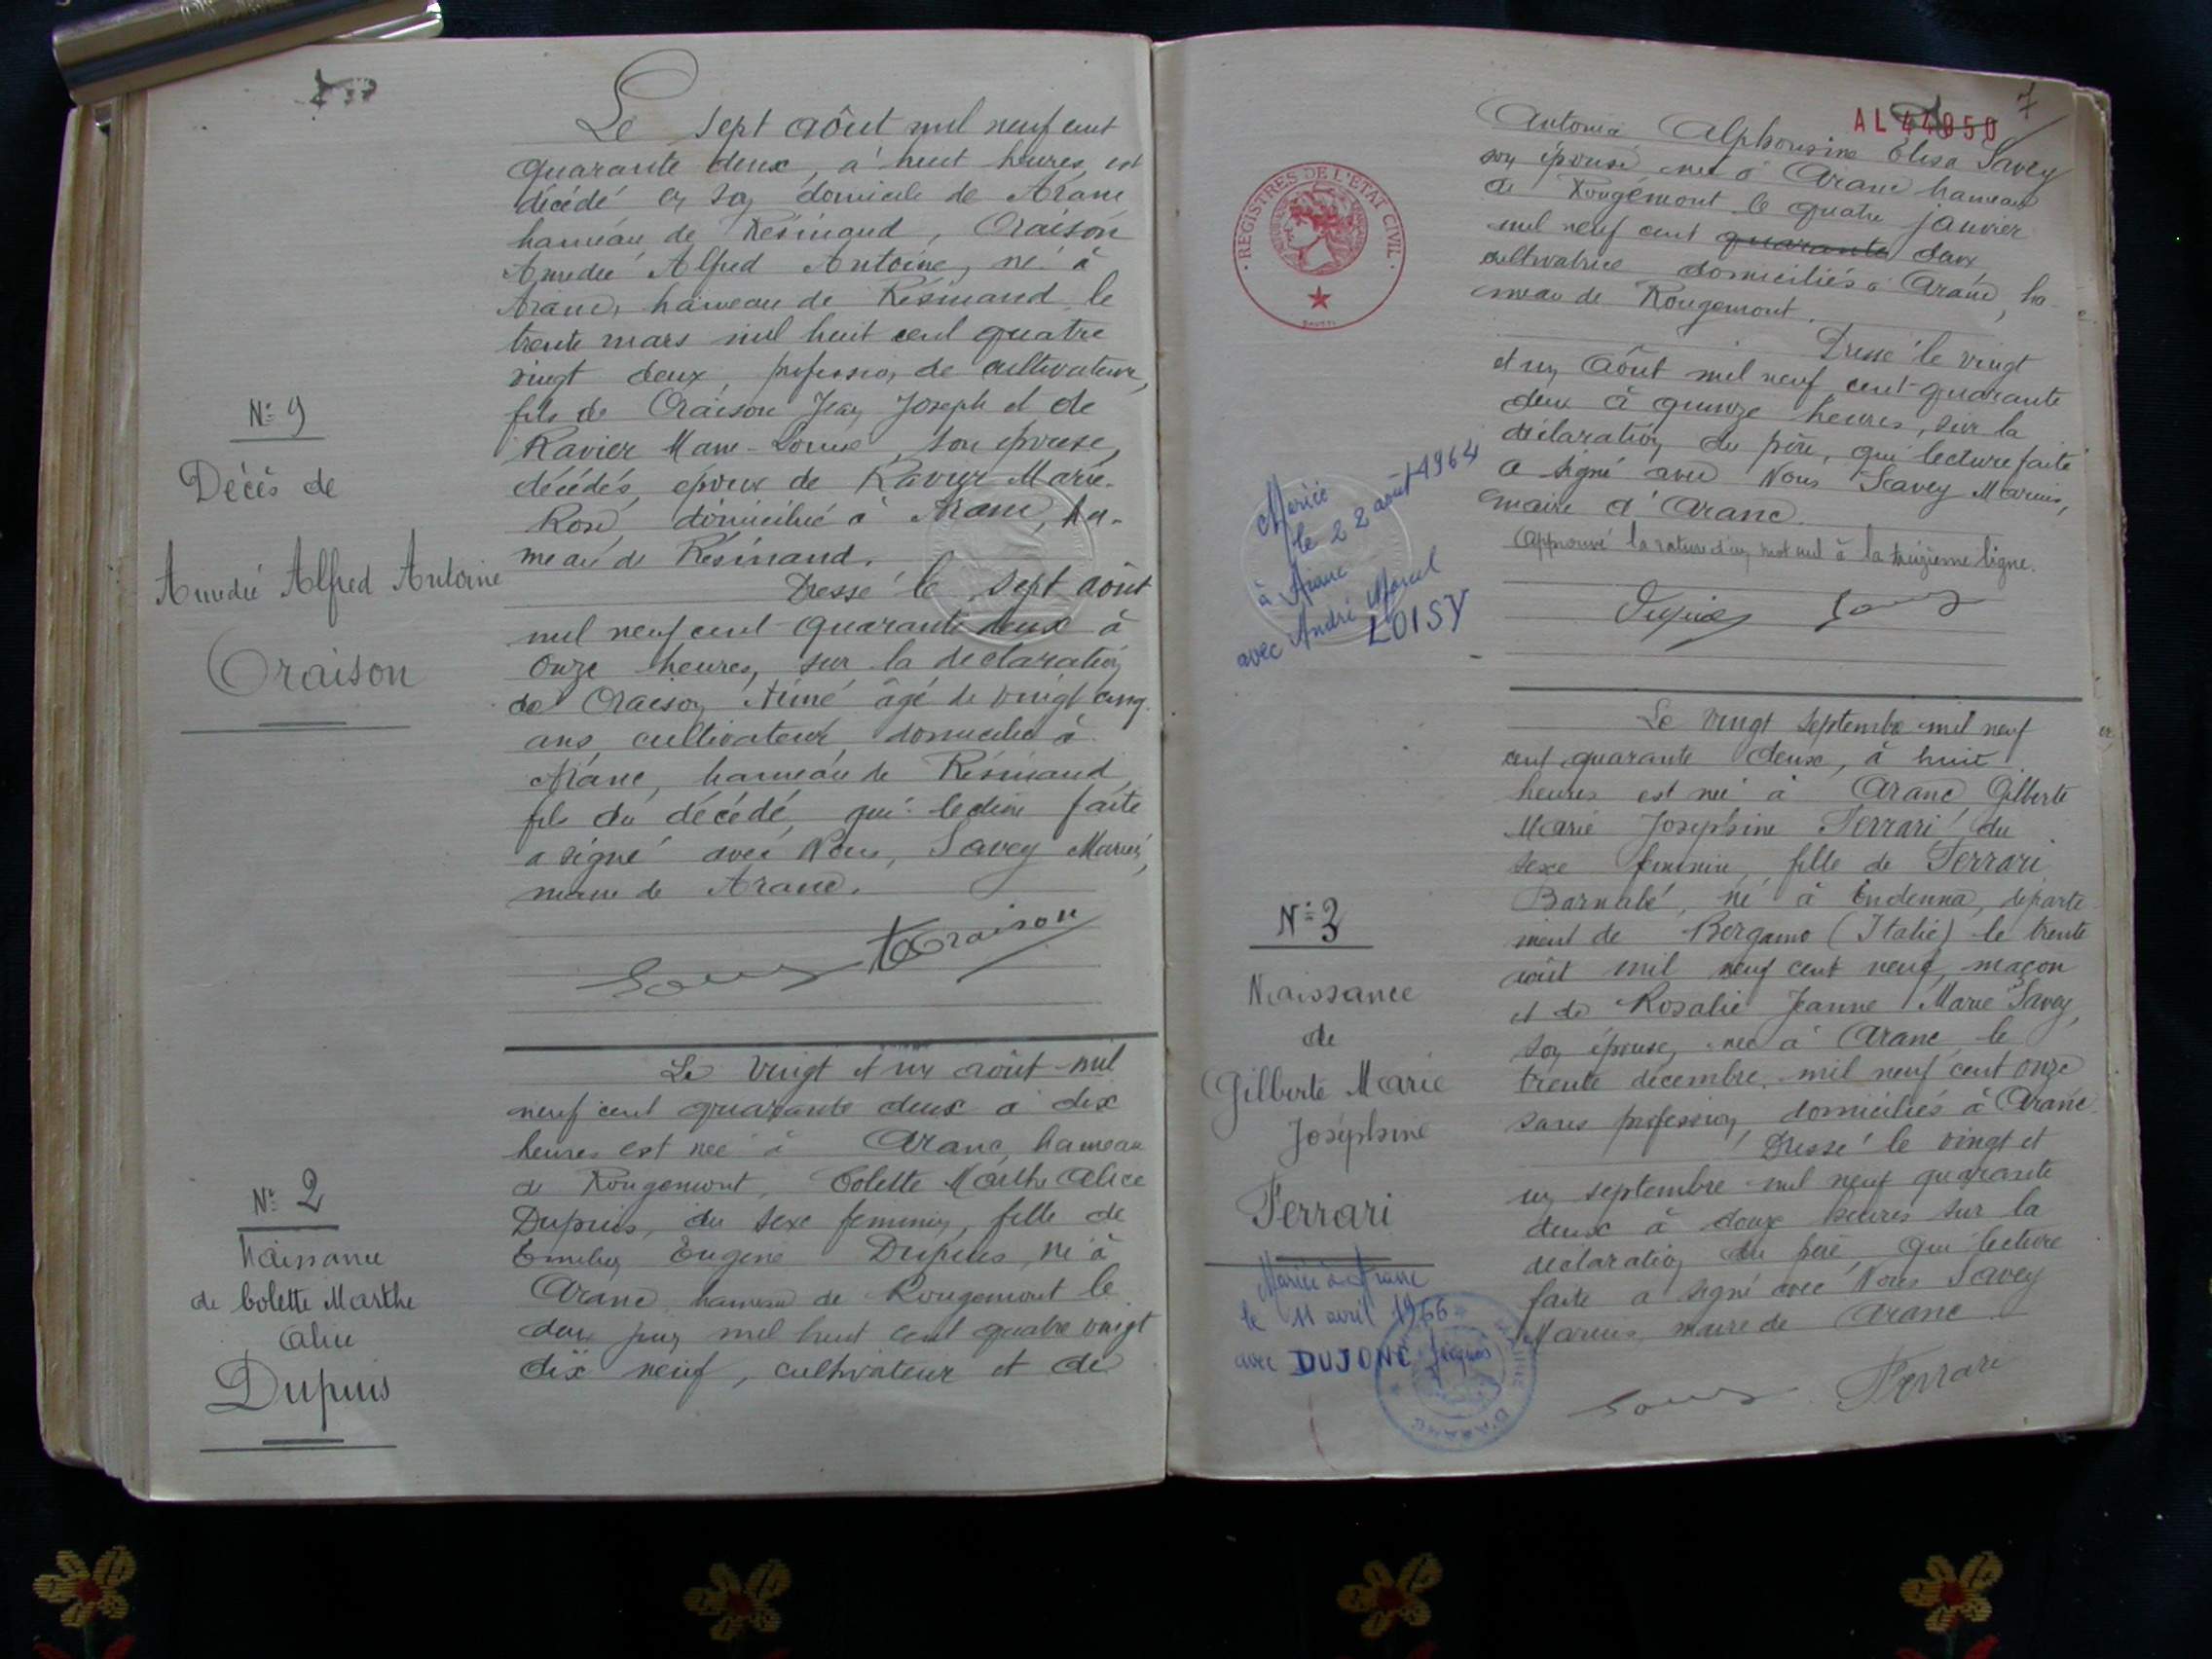 N° 9
Décès de
Amédée Alfred Antoine
Oraison
Le sept août mil neuf cent
quarante deux, à huit heures, est
décédé en son domicile de Aranc
hameau de Résinand, Oraison
Amédée Alfred Antoine, né à
Aranc, hameau de Résinand le
trente mars mil huit cent quatre
vingt deux, profession de cultivateur,
fils de Oraison Jean Joseph et de
Ravier Marie-Louise, son épouse,
décédés, époux de Ravier Marie-
Rose, domicilié à Aranc, ha-
meau de Résinand.
Dressé le sept août
mil neuf cent quarante deux à
onze heures, sur la déclaration
de Oraison Aimé âgé de vingt cinq
ans, cultivateur domicilié à
Aranc, hameau de Résinand,
fils du décédé, qui lecture faite
a signé avec Nous, Savey Marius,
maire de Aranc.
Oraison
N° 2
Naissance
de Colette Marthe
Alice
Dupuis
Le vingt et un août mil
neuf cent quarante deux à dix
heures est née à Aranc, hameau
de Rougemont, Colette Marthe Alice
Dupuis, du sexe féminin, fille de
Emilien Eugène Dupuis, né à
Aranc hameau de Rougemont le
deux juin mil huit cent quatre vingt
dix neuf, cultivateur et de
7
AL 44950
REGISTRES DE L'ETAT CIVIL
Antonia Alphonsine Elisa Savey
son épouse, née à Aranc hameau
de Rougemont le quatre janvier
mil neuf cent quarante deux
cultivatrice domiciliés à Aranc, ha-
meau de Rougemont.
Dressé le vingt
et un août mil neuf cent quarante
deux à quinze heures, sur la
déclaration du père, qui lecture faite
a signé avec Nous Savey Marius,
maire d'Aranc.
Approuvé la rature d'un mot nul à la treizième ligne.
Dupuis
Mariée
le 22 août 1964
à Aranc
avec André Marcel
LOISY
N° 3
Naissance
de
Gilberte Marie
Joséphine
Ferrari
Mariée à Aranc
le 11 avril 1966
avec DUJONC Jacques
MAIRIE D'ARANC
Le vingt septembre mil neuf
cent quarante deux, à huit
heures est née à Aranc, Gilberte
Marie Joséphine Ferrari du
sexe féminin, fille de Ferrari
Barnabé, né à Endenna, départe
ment de Bergamo (Italie) le trente
août mil neuf cent neuf, maçon
et de Rosalie Jeanne Marie Savey,
son épouse, née à Aranc, le
trente décembre, mil neuf cent onze
sans profession, domiciliés à Aranc.
Dressé le vingt et
un septembre mil neuf quarante
deux à douze heures sur la
déclaration du père, qui lecture
faite a signé avec Nous Savey
Marius, maire de Aranc
Ferrari